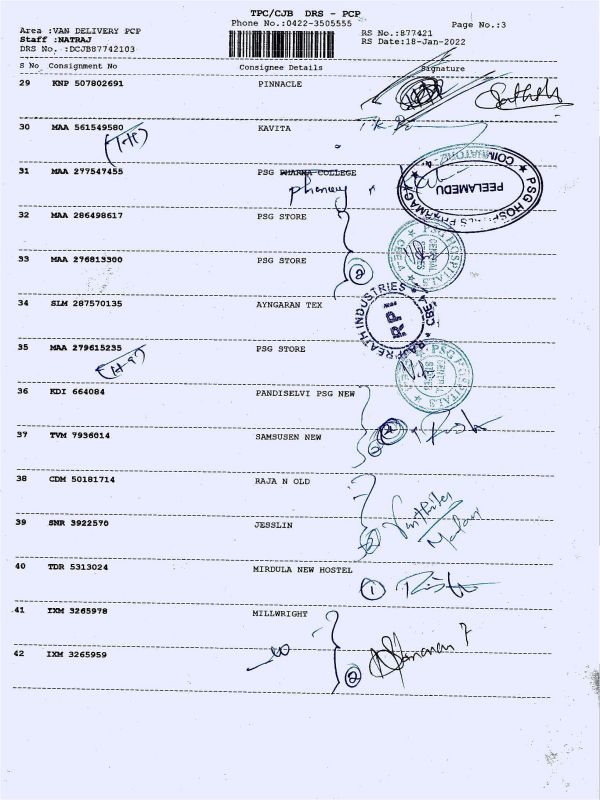 TPC/CJB DRS - PCP
Phone No.:0422-3505555
Page No.:3
Area :VAN DELIVERY PCP
Staff :NATRAJ
DRS No. :DCJB87742103
RS No.:877421
RS Date:18-Jan-2022
S No Consignment No Consignee Details Signature
29 KNP 507802691 PINNACLE
30 MAA 561549580 KAVITA
31 MAA 277547455 PSG DHARMA COLLEGE
32 MAA 286498617 PSG STORE
33 MAA 276813300 PSG STORE
2
34 SLM 287570135 AYNGARAN TEX
35 MAA 279615235 PSG STORE
36 KDI 664084 PANDISELVI PSG NEW
37 TVM 7936014 SAMSUSEN NEW
38 CDM 50181714 RAJA N OLD
39 SNR 3922570 JESSLIN
40 TDR 5313024 MIRDULA NEW HOSTEL
1
41 IXM 3265978 MILLWRIGHT
42 IXM 3265959
2
PEELAMEDU
COIMATORE - 4
PSG HOSPITALS
CENTRAL STORES
CBE-4
INDUSTRIES
RPI
PSG HOSPITALS
CENTRAL STORES